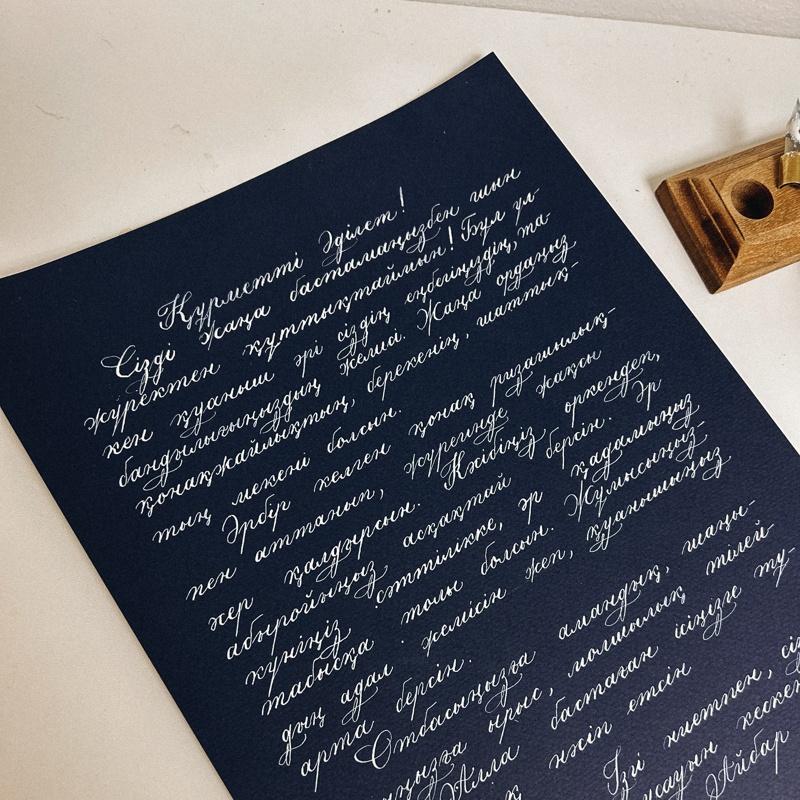 Құрметті Әділет!
Сізді жаңа бастамаңызбен шын
жүректен құттықтаймын! Бұл ұл-
кен қуаныш әрі сіздің еңбегіңіздің, та-
бандылығыңыздың жемісі. Жаңа ордаңыз
қонақжайлықтың, берекенің, шаттық-
тың мекені болсын.
Әрбір келген қонақ ризашылық-
пен аттанып, жүрегінде жақсы
әсер қалдырсын. Кәсібіңіз өркендеп,
абыройыңыз асқақтай берсін. Әр
күніңіз сәттілікке, әр қадамыңыз
табысқа толы болсын. Жұмысыңыз-
дың адал жемісін жеп, қуанышыңыз
арта берсін.
Отбасыңызға амандық, шаңы-
ырыс, молшылық тілей-
Алла бастаған ісіңізге ту-
нәсіп етсін
Ізгі ниетпен,
Айбар